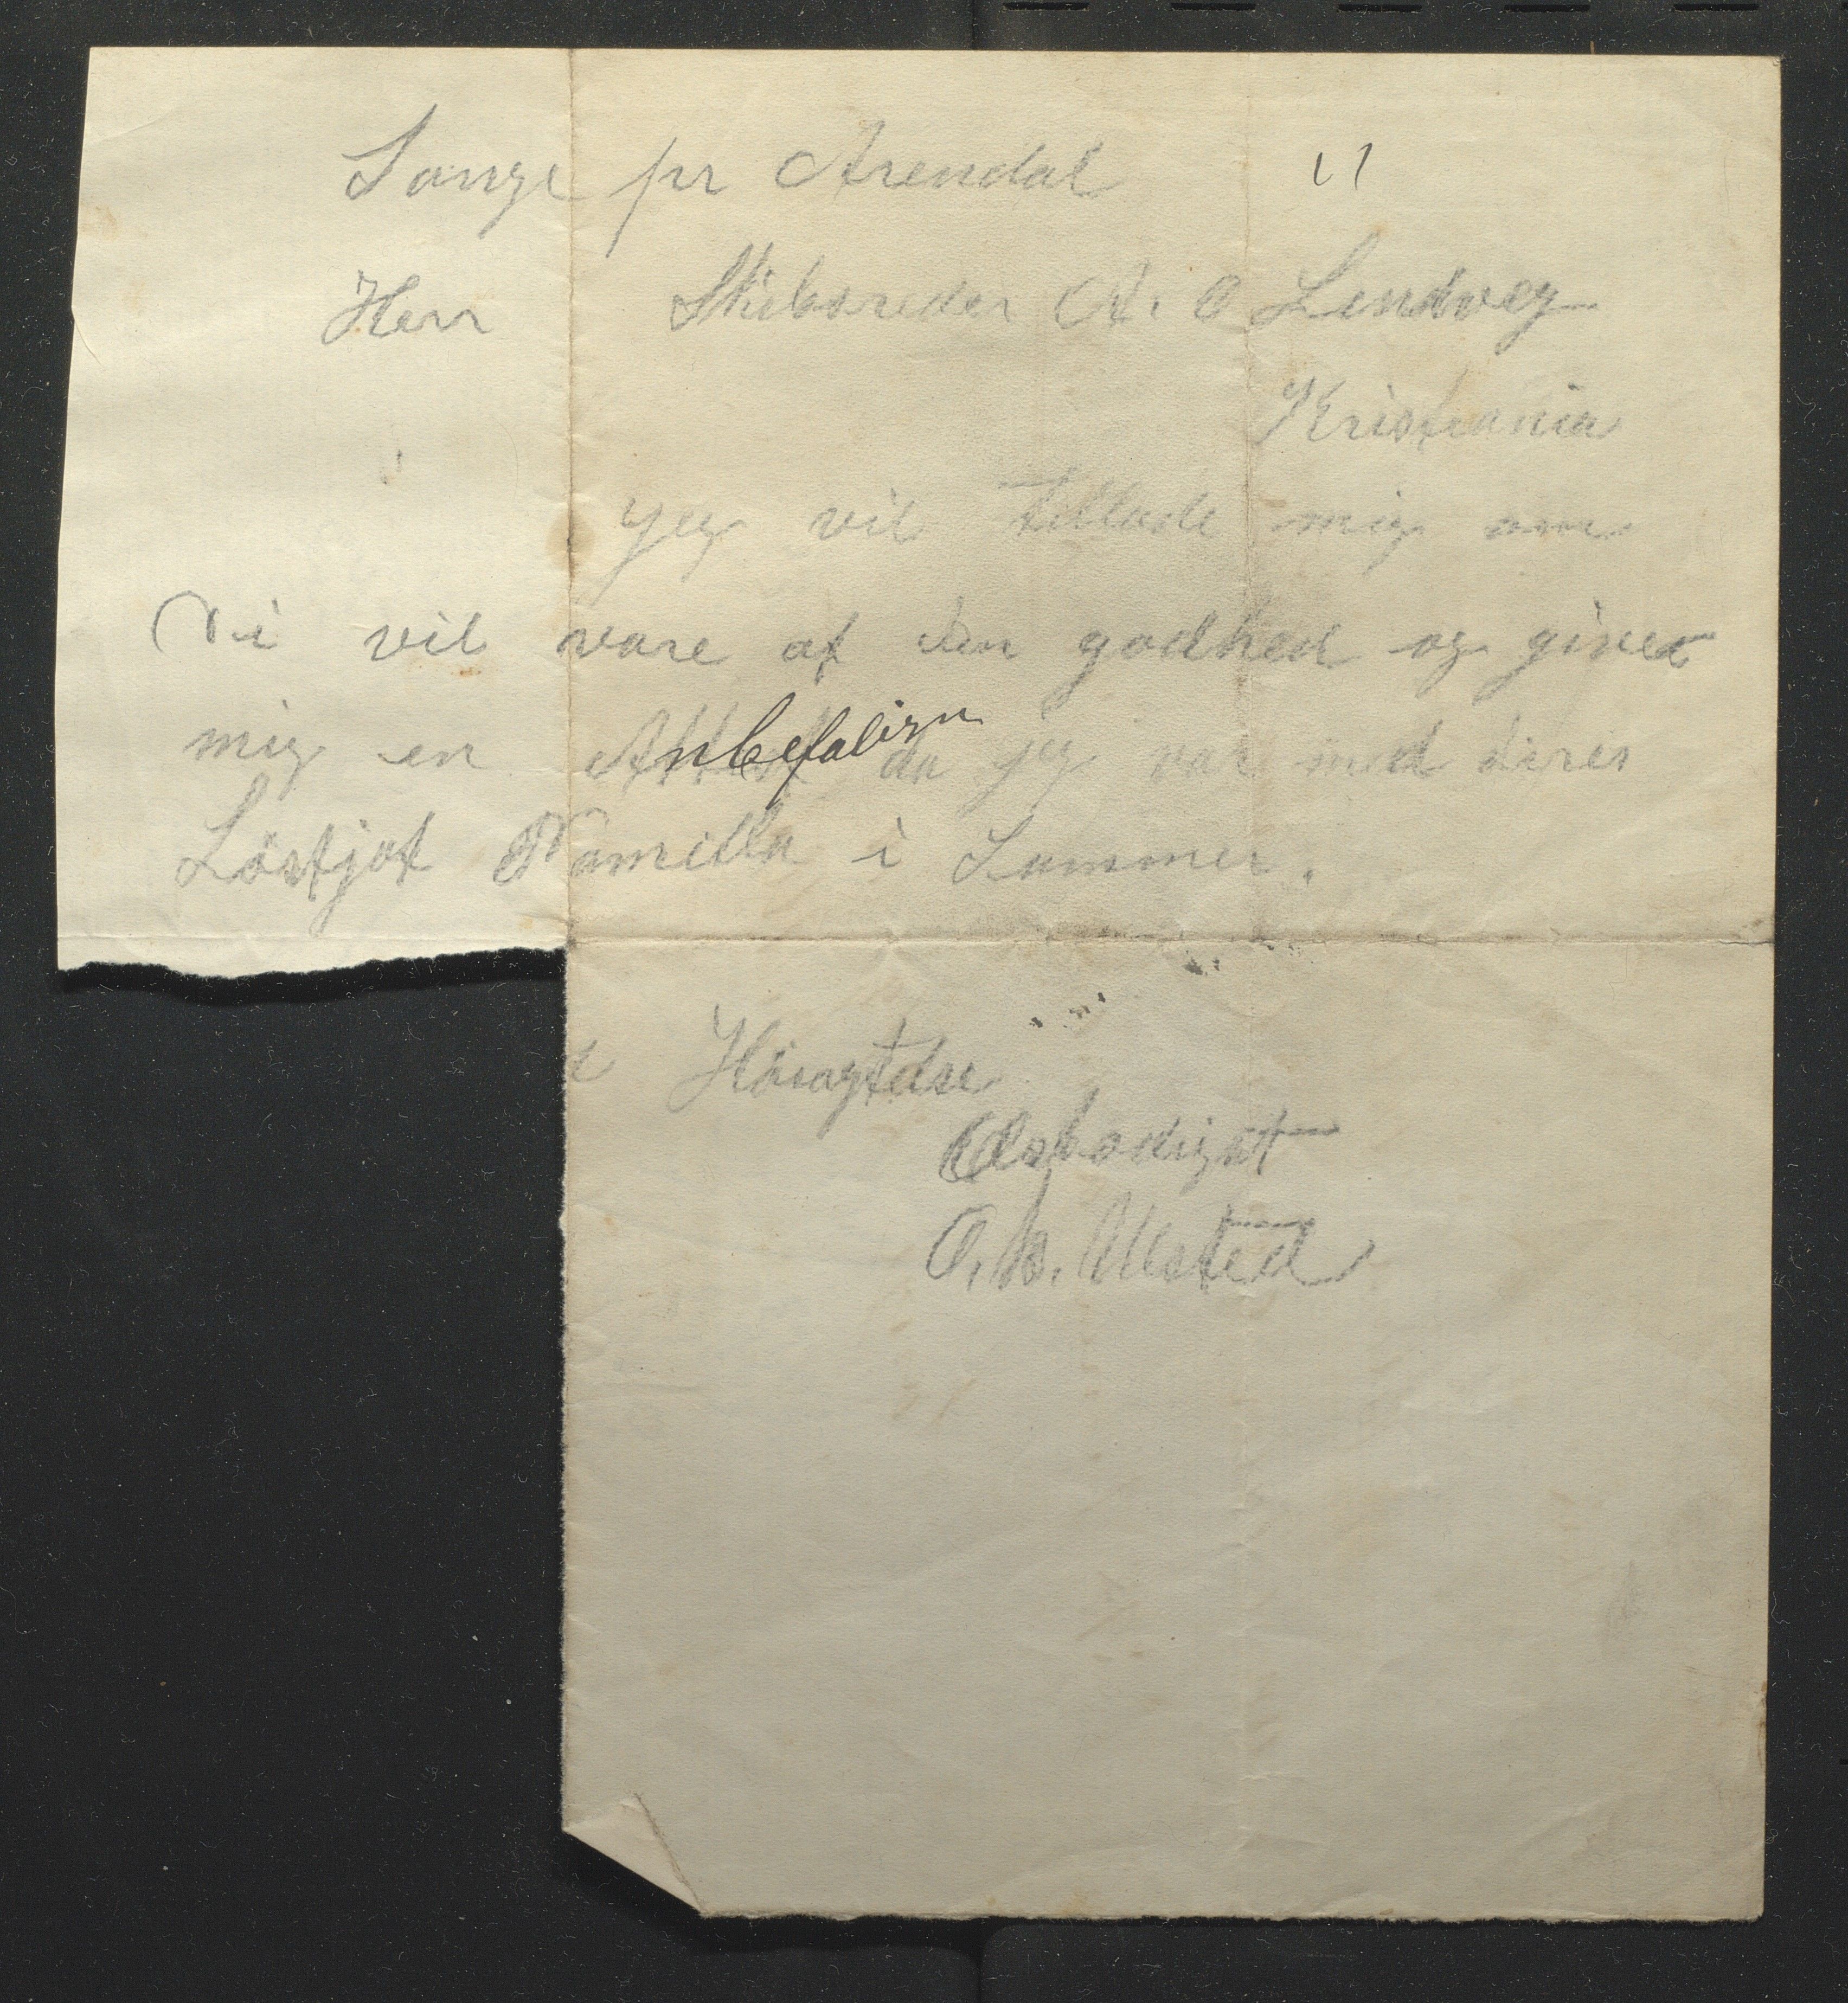 Songe pr Arendal
Herr Skibsreder A. O Lindvig
Kristiania
Jeg vil tillade mig om
Di vil vare af den godhed og giver
mig en Attest nbefaling da jeg var med dires
Löstjot Kamilla i Sommer.
Höiagtelse
Ærbødigst
O. N. Ulsted